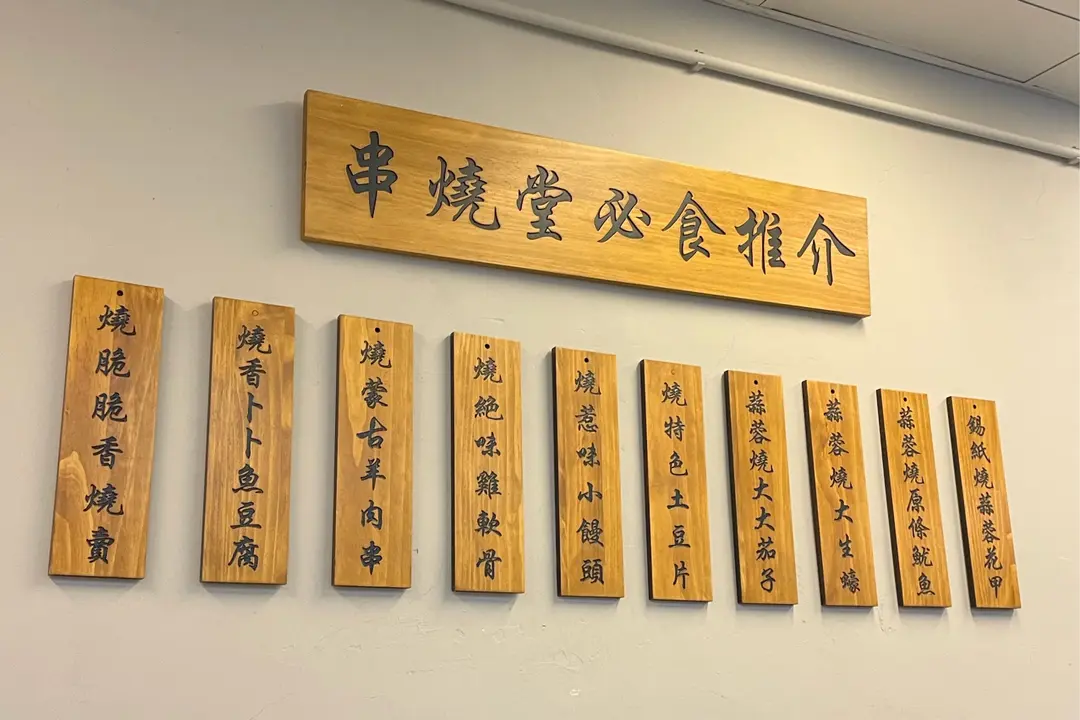 串燒堂必食推介
燒脆脆香燒賣
燒香卜卜魚豆腐
燒蒙古羊肉串
燒絕味雞軟骨
燒惹味小饅頭
燒特色土豆片
蒜蓉燒大大茄子
蒜蓉燒大生蠔
蒜蓉燒原條魷魚
錫紙燒蒜蓉花甲